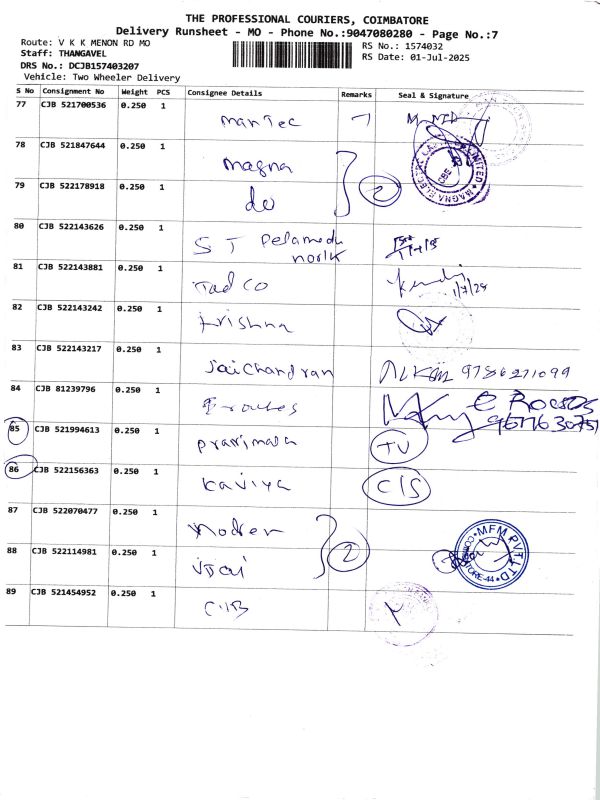 THE PROFESSIONAL COURIERS, COIMBATORE
Delivery Runsheet - MO - Phone No.:9047080280 - Page No.:7
Route: V K K MENON RD MO
Staff: THANGAVEL
DRS No.: DCJB157403207
Vehicle: Two Wheeler Delivery
RS No.: 1574032
RS Date: 01-Jul-2025
S No Consignment No Weight PCS Consignee Details Remarks Seal & Signature
77 CJB 521700536 0.250 1 Mantec
78 CJB 521847644 0.250 1 Magna
79 CJB 522178918 0.250 1 do 2
MAGNA ELECTRO LIMITED
CBE
80 CJB 522143626 0.250 1 S T Pelamedu
81 CJB 522143881 0.250 1 Tad CO
82 CJB 522143242 0.250 1 Krishna
83 CJB 522143217 0.250 1 Jaichandran 9786271099
84 CJB 81239796 0.250 1
85 CJB 521994613 0.250 1 TV
86 CJB 522156363 0.250 1 Kaviya C/S
87 CJB 522070477 0.250 1
88 CJB 522114981 0.250 1 2
MFM PVT LTD
89 CJB 521454952 0.250 1